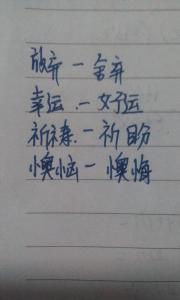 放弃－舍弃
幸运－好运
祈祷－祈盼
懊恼－懊悔